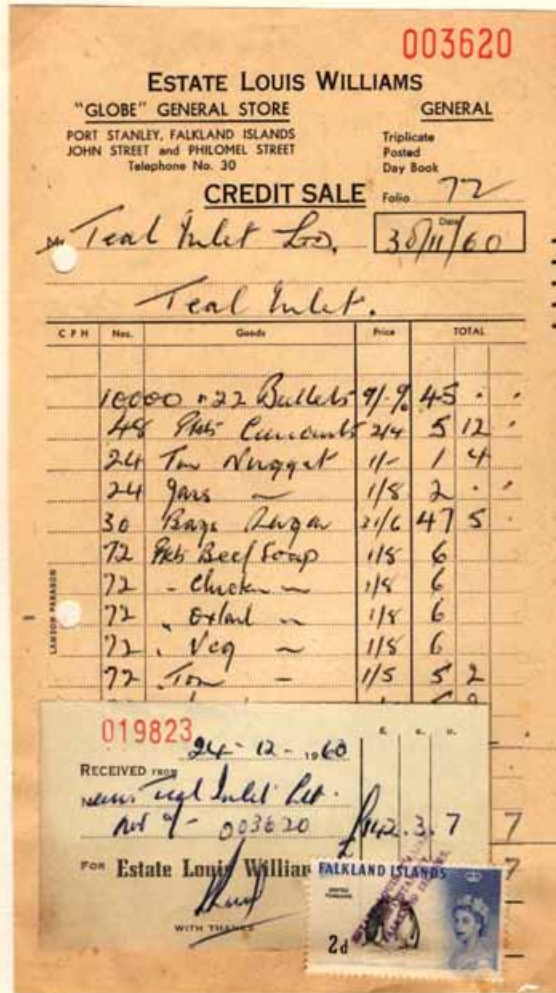 003620
ESTATE LOUIS WILLIAMS
"GLOBE" GENERAL STORE
GENERAL
PORT STANLEY, FALKLAND ISLANDS
JOHN STREET and PHILOMEL STREET
Telephone No. 30
Triplicate
Posted
Day Book
CREDIT SALE
Folio 72
Mr Teal Inlet Ltd.
Date
30/11/60
Teal Inlet.
C P H Nos. Goods Price TOTAL
10000 .22 Bullets 9/- % 45 . .
48 Pkts Currants 2/4 5 12 .
24 Tins Nugget 1/- 1 4
24 Jars ~ 1/8 2 . .
30 Bags Sugar 31/6 47 5 .
72 Pkts Beef Soap 1/8 6
72 - Chicken ~ 1/8 6
72 " Oxtail ~ 1/8 6
72 . Veg ~ 1/8 6
72 . Tom - 1/5 5 2
LAMSON PARAGON
019823
24-12-1960
£ s. D.
RECEIVED FROM
Teal Inlet Ltd.
003620 £142.3.7
7
FOR Estate Louis Williar
7
WITH THANKS
FALKLAND ISLANDS
GENTOO PENGUINS
2d